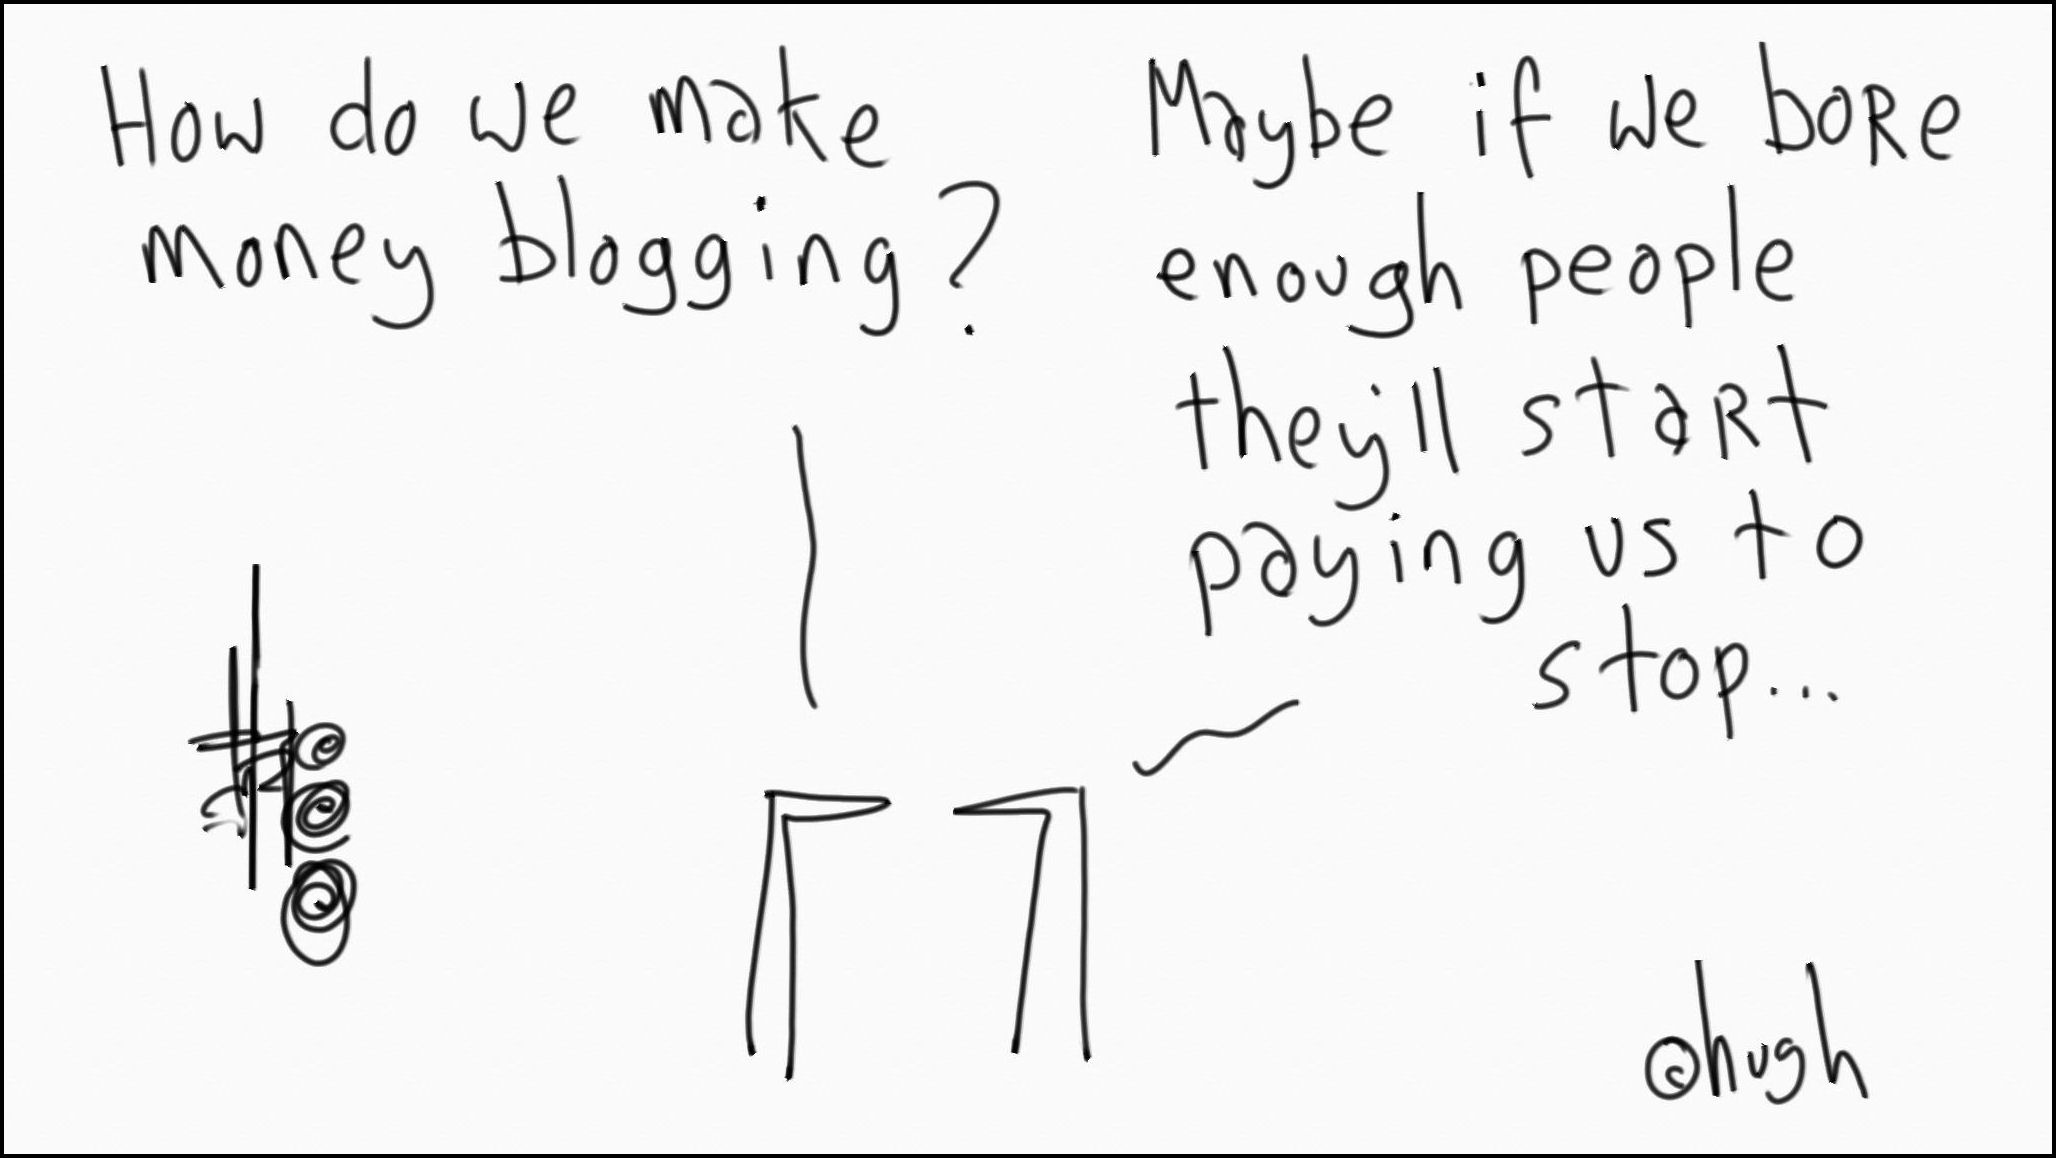 How do we make
money blogging?
Maybe if we bore
enough people
they'll start
paying us to
stop...
@hugh